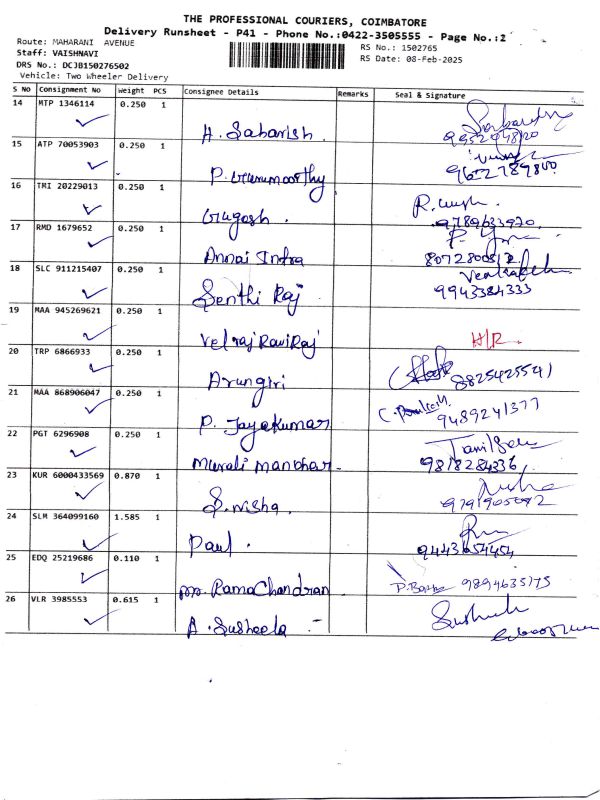 THE PROFESSIONAL COURIERS, COIMBATORE
Delivery Runsheet - P41 - Phone No.:0422-3505555 - Page No.:2
Route: MAHARANI AVENUE
Staff: VAISHNAVI
DRS No.: DCJB150276502
Vehicle: Two Wheeler Delivery
RS No.: 1502765
RS Date: 08-Feb-2025
S No Consignment No Weight PCS Consignee Details Remarks Seal & Signature
14 MTP 1346114 0.250 1
A. Sabarish.
15 ATP 70053903 0.250 1
P. Gurumoorthy 9612789800
16 TMI 20229013 0.250 1
Gugash. 9789633920
17 RMD 1679652 0.250 1
Annai Indra
18 SLC 911215407 0.250 1
Senthi Raj 9943384333
19 MAA 945269621 0.250 1
Velraj RaviRaj H/R
20 TRP 6866933 0.250 1
Arungiri 8825425541
21 MAA 868906047 0.250 1
P. Jayakumar 9489241377
22 PGT 6296908 0.250 1
Murali Manohar. 9818284336
23 KUR 6000433569 0.870 1
S. nisha. 9791905092
24 SLM 364099160 1.585 1
Paul. 9443654454
25 EDQ 25219686 0.110 1
M. RamaChandran 9894635175
26 VLR 3985553 0.615 1
A. Susheela